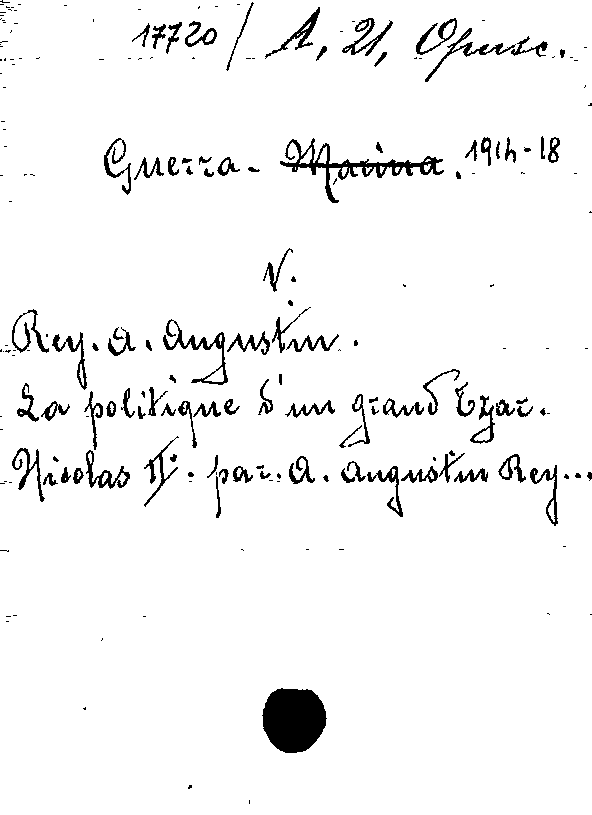 17720 / A, 21, Opusc.
Guerra - Marina. 1914-18
V.
Rey. A. Augustin.
La politique d'un grand Tzar.
Nicolas II. par. A. Augustin Rey...